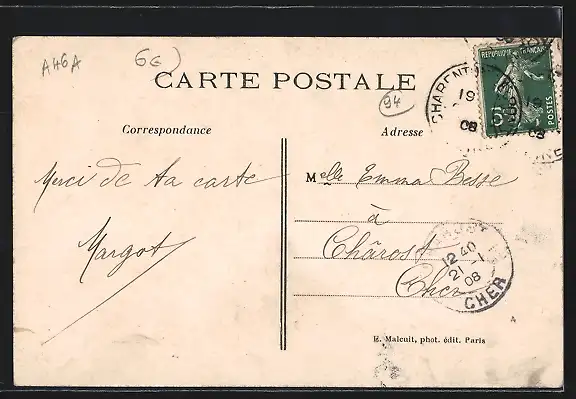 A46A
6€
CARTE POSTALE
94
Correspondance
Adresse
REPUBLIQUE FRANÇAISE
POSTES
5
CHARENTON
19
08
Merci de ta carte
Margot
Melle Emma Besse
à
Chârost
Cher
12 40
21 -1
08
CHER
E. Malcuit, phot. édit. Paris